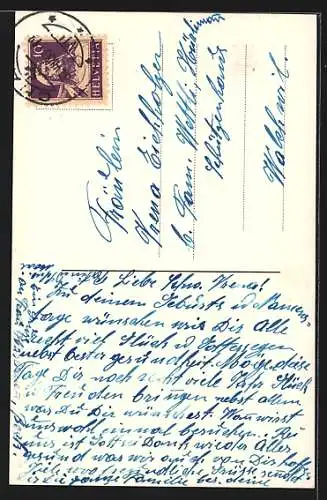 10
HELVETIA
Fräulein
Vrena
b. Fam. Wettli
Schützenhaus
Walchwil.
Liebe Schw. Vrena!
Zu deinem Geburts u Namens-
tage wünschen wir Dir Alle
recht viel Glück u Gottessegen
nebst bester Gesundheit. Möge diese
Tage Dir noch recht viele Jahr Glück
u Freuden bringen nebst allem
was Du Dir wünschest. Wann wirst
uns wohl einmal besuchen. Bei
uns ist Gott u Dank wieder Alles
gesund was wir auch von Dir hoffen
Viele freundliche Grüsse sendet
Dir die ganze Familie bes. deine